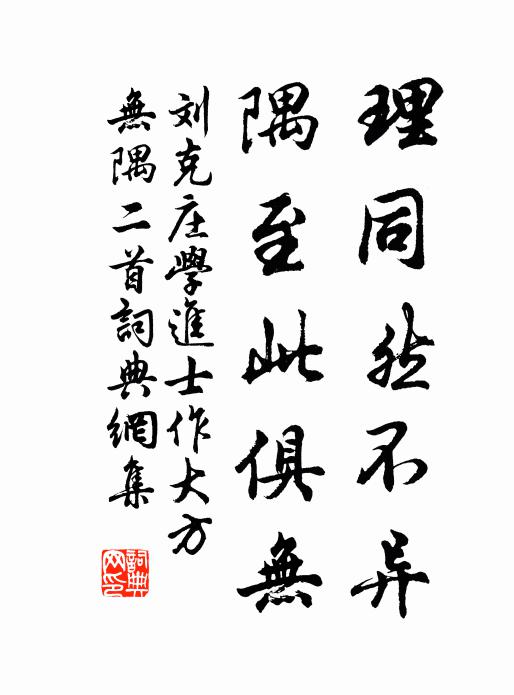 理同然不异
隅至此俱無
刘克庄學進士作大方
無隅二首詞典網集
詞典网印